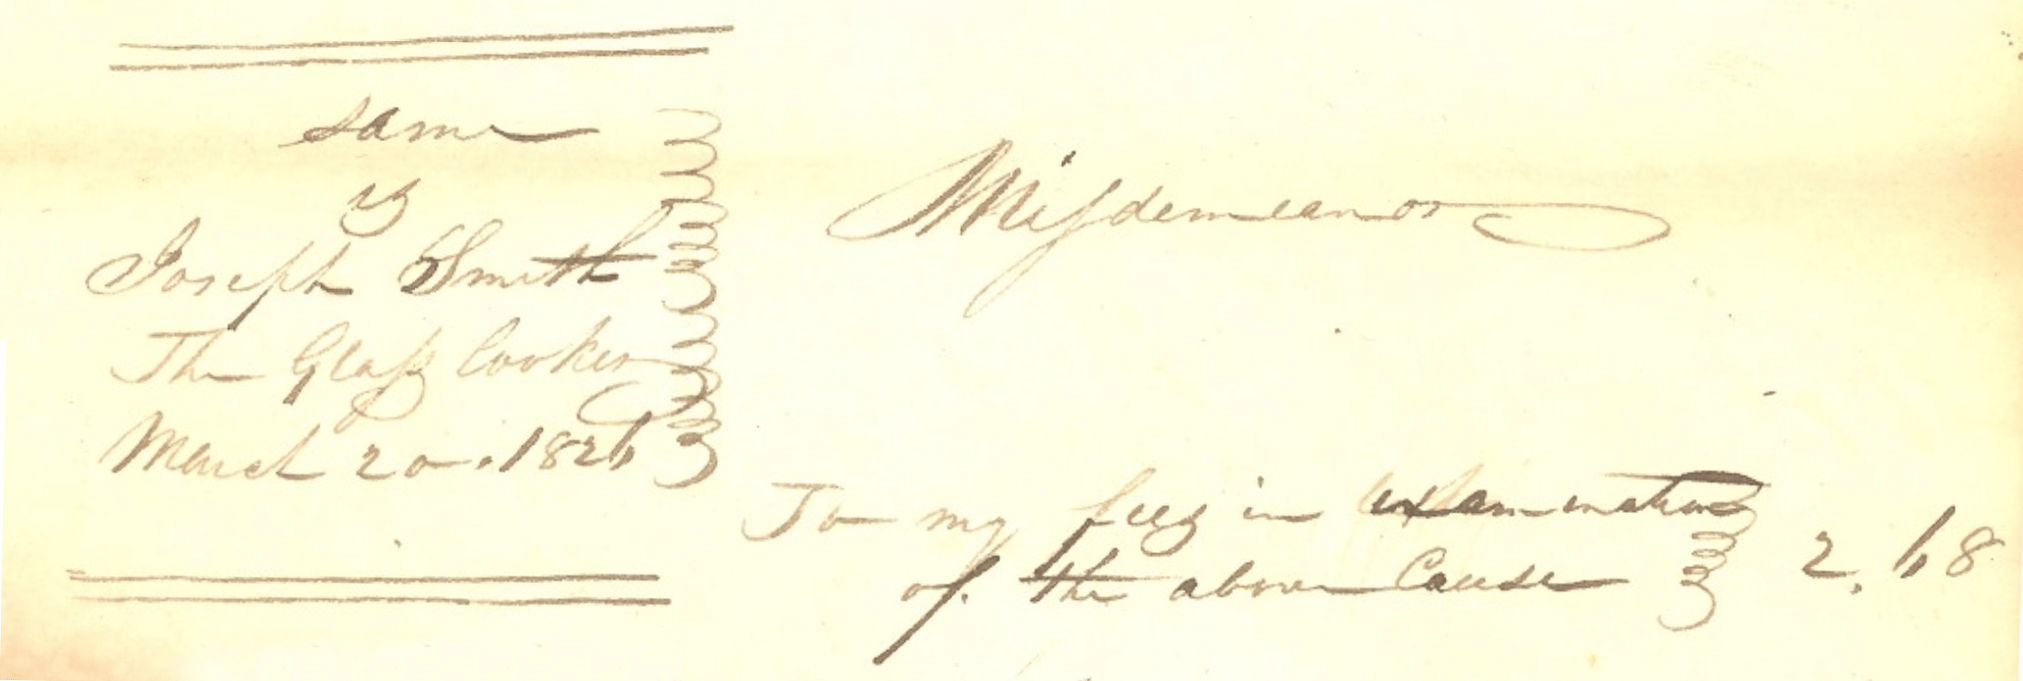 same
vs
Joseph Smith
The Glass looker
March 20. 1826
Misdemeanor
To my fees in examination
of the above Cause 2.68